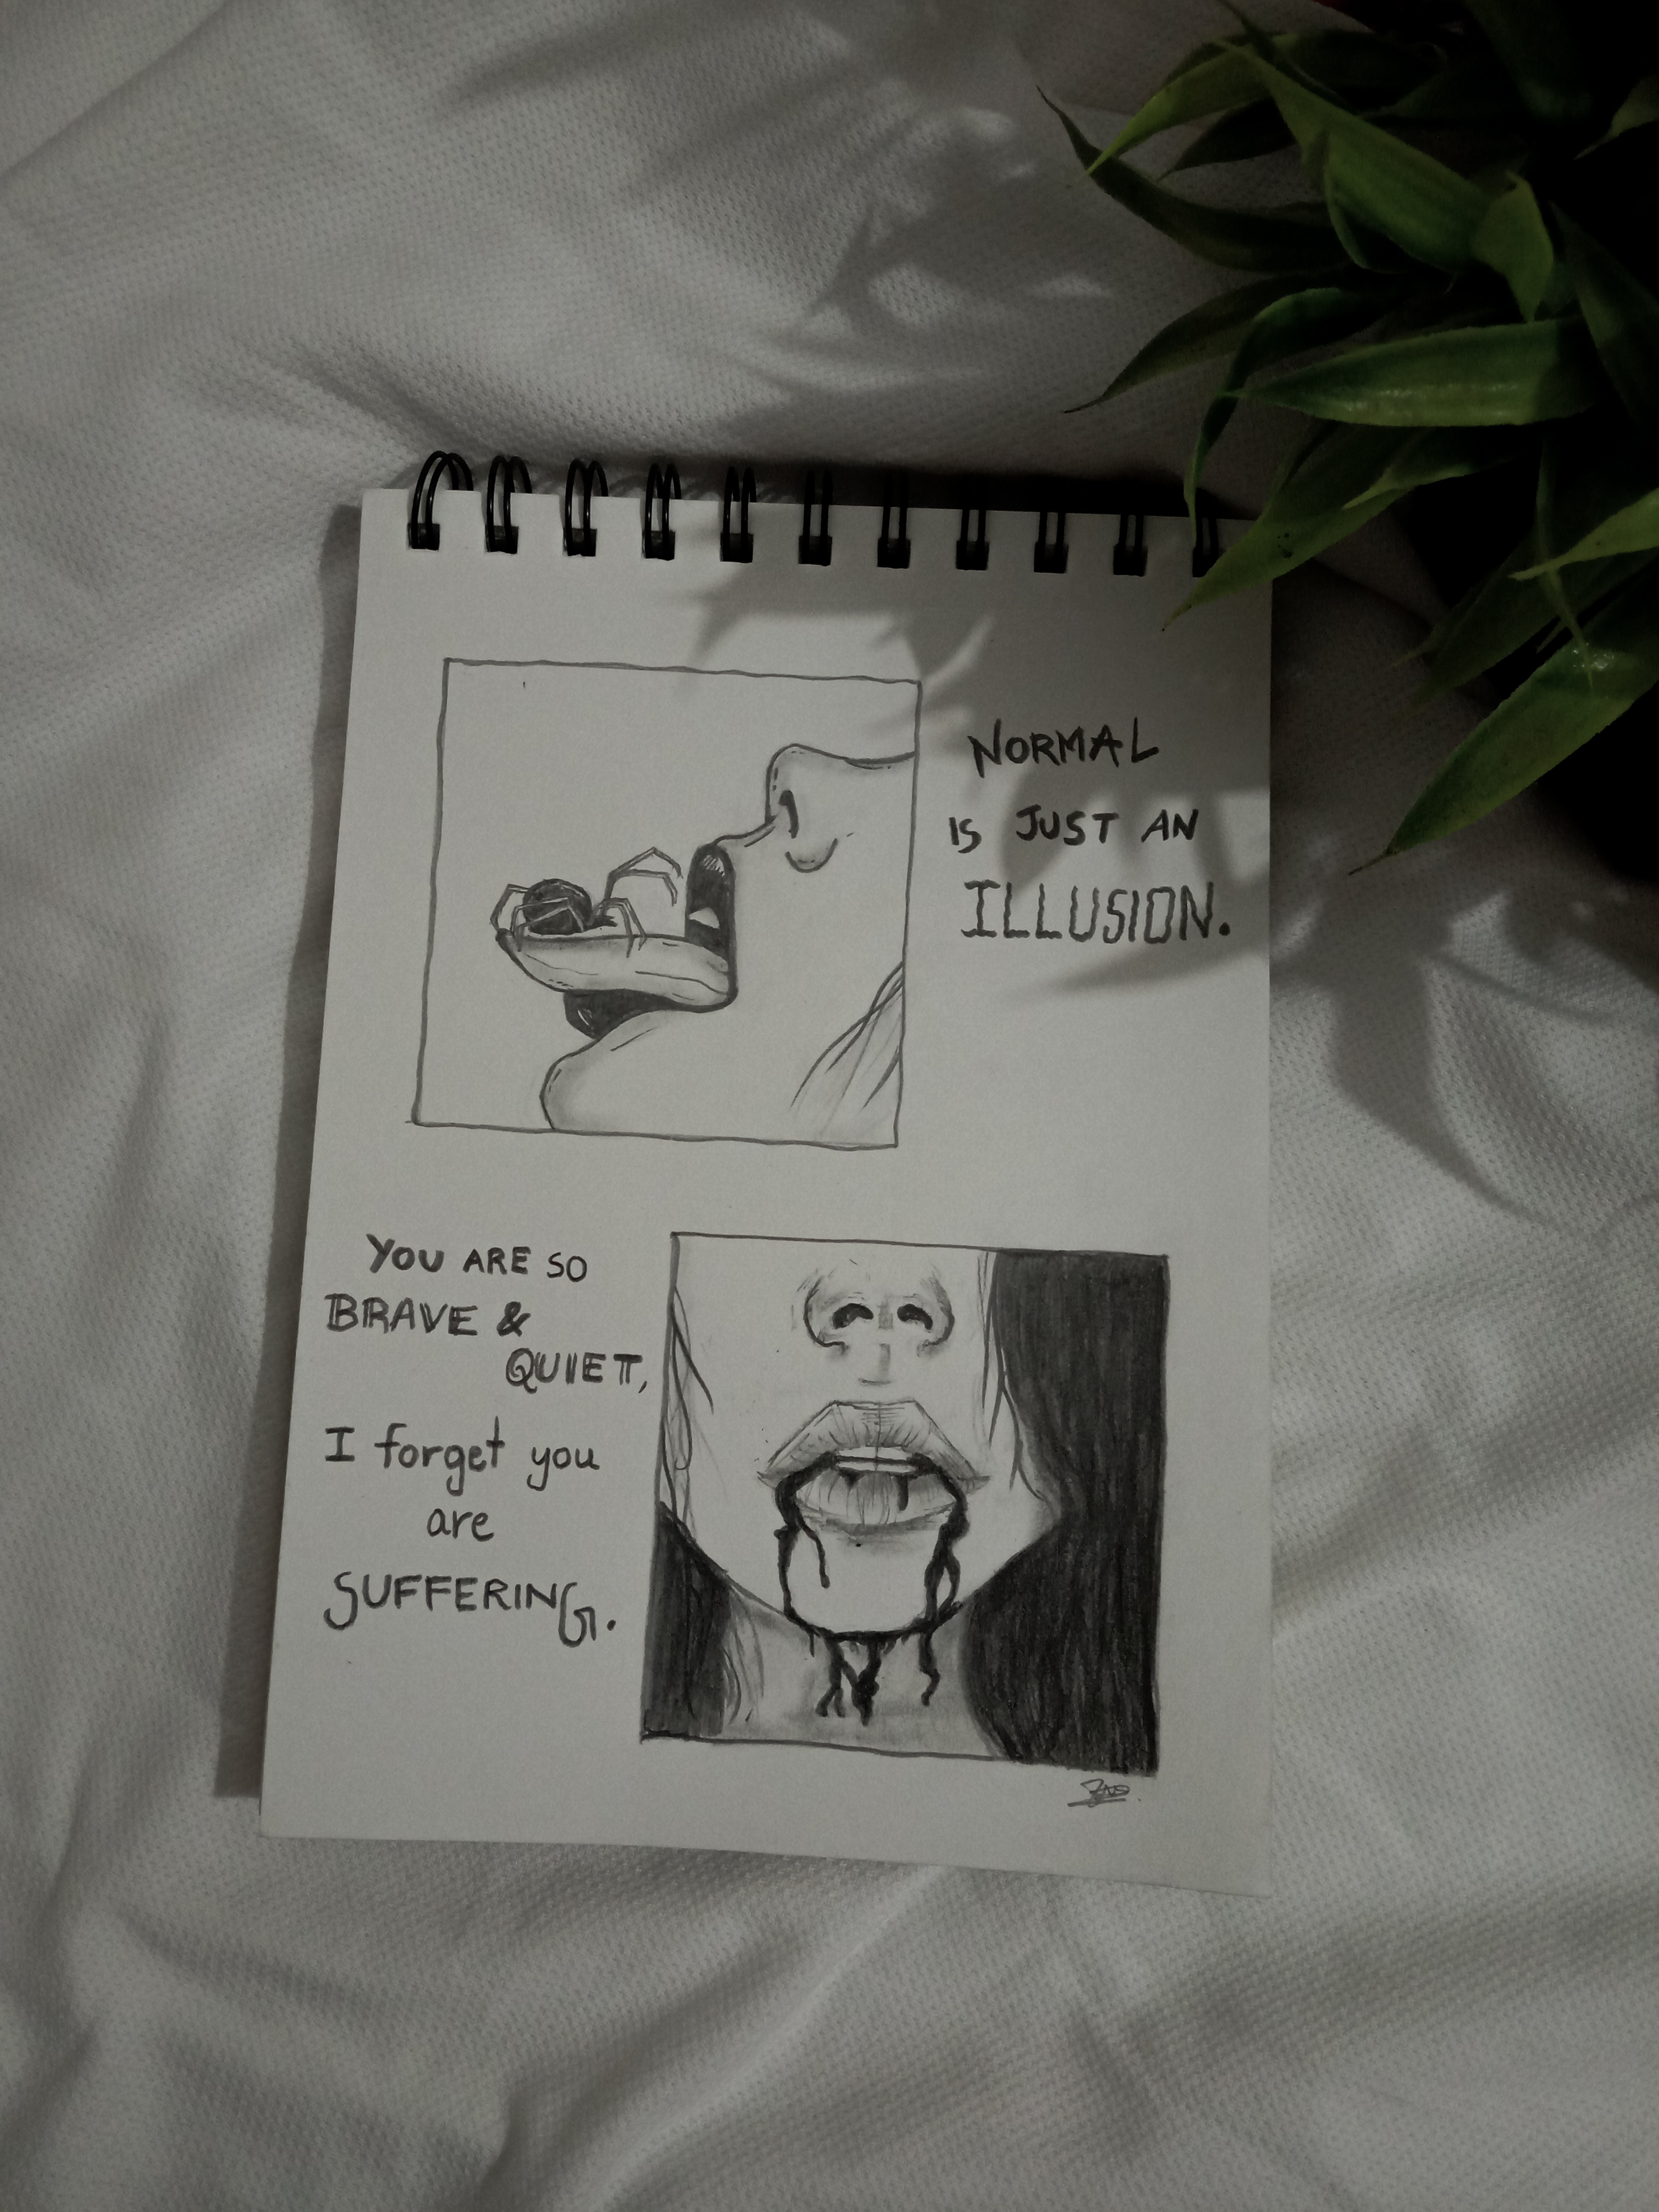 NORMAL
IS JUST AN
ILLUSION.
YOU ARE SO
BRAVE &
QUIET,
I forget you
are
SUFFERING.